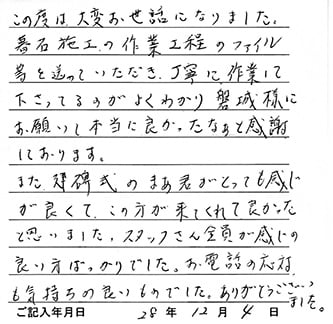 この度は、大変お世話になりました。
墓石施工の作業工程のファイル
等を送っていただき、丁寧に作業して
下さってるのがよくわかり 磐城様に
お願いし本当に良かったなぁと感謝
しております。
また、建碑式の まあ君がとっても感じ
が良くて、この方が来てくれて良かった
と思いました。スタッフさん全員が感じの
良い方ばっかりでした。お電話の応対
も気持ちの良いものでした。ありがとうございました。
ご記入年月日 28年 12月 4日